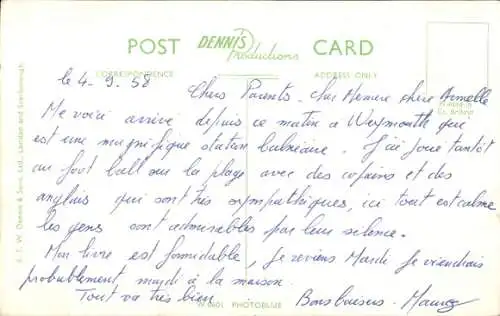 POST DENNIS Productions CARD
CORRESPONDENCE
ADDRESS ONLY
Printed in
Gt. Britain
E. T. W. Dennis & Sons, Ltd., London and Scarborough.
le 4-9.58
Chers Parents - cher Memere chère Armelle
Me voici arrivé depuis ce matin a Weymouth qui
est une magnifique station balnéaire. J'ai joué tantôt
au foot ball sur la plage avec des copains et des
anglais qui sont très sympathiques, ici tout est calme
les gens sont admirables par leur silence.
Mon livre est formidable, je reviens Mardi je viendrais
probablement mardi à la maison.
Tout va très bien Bons baisers -
PHOTOBLUE